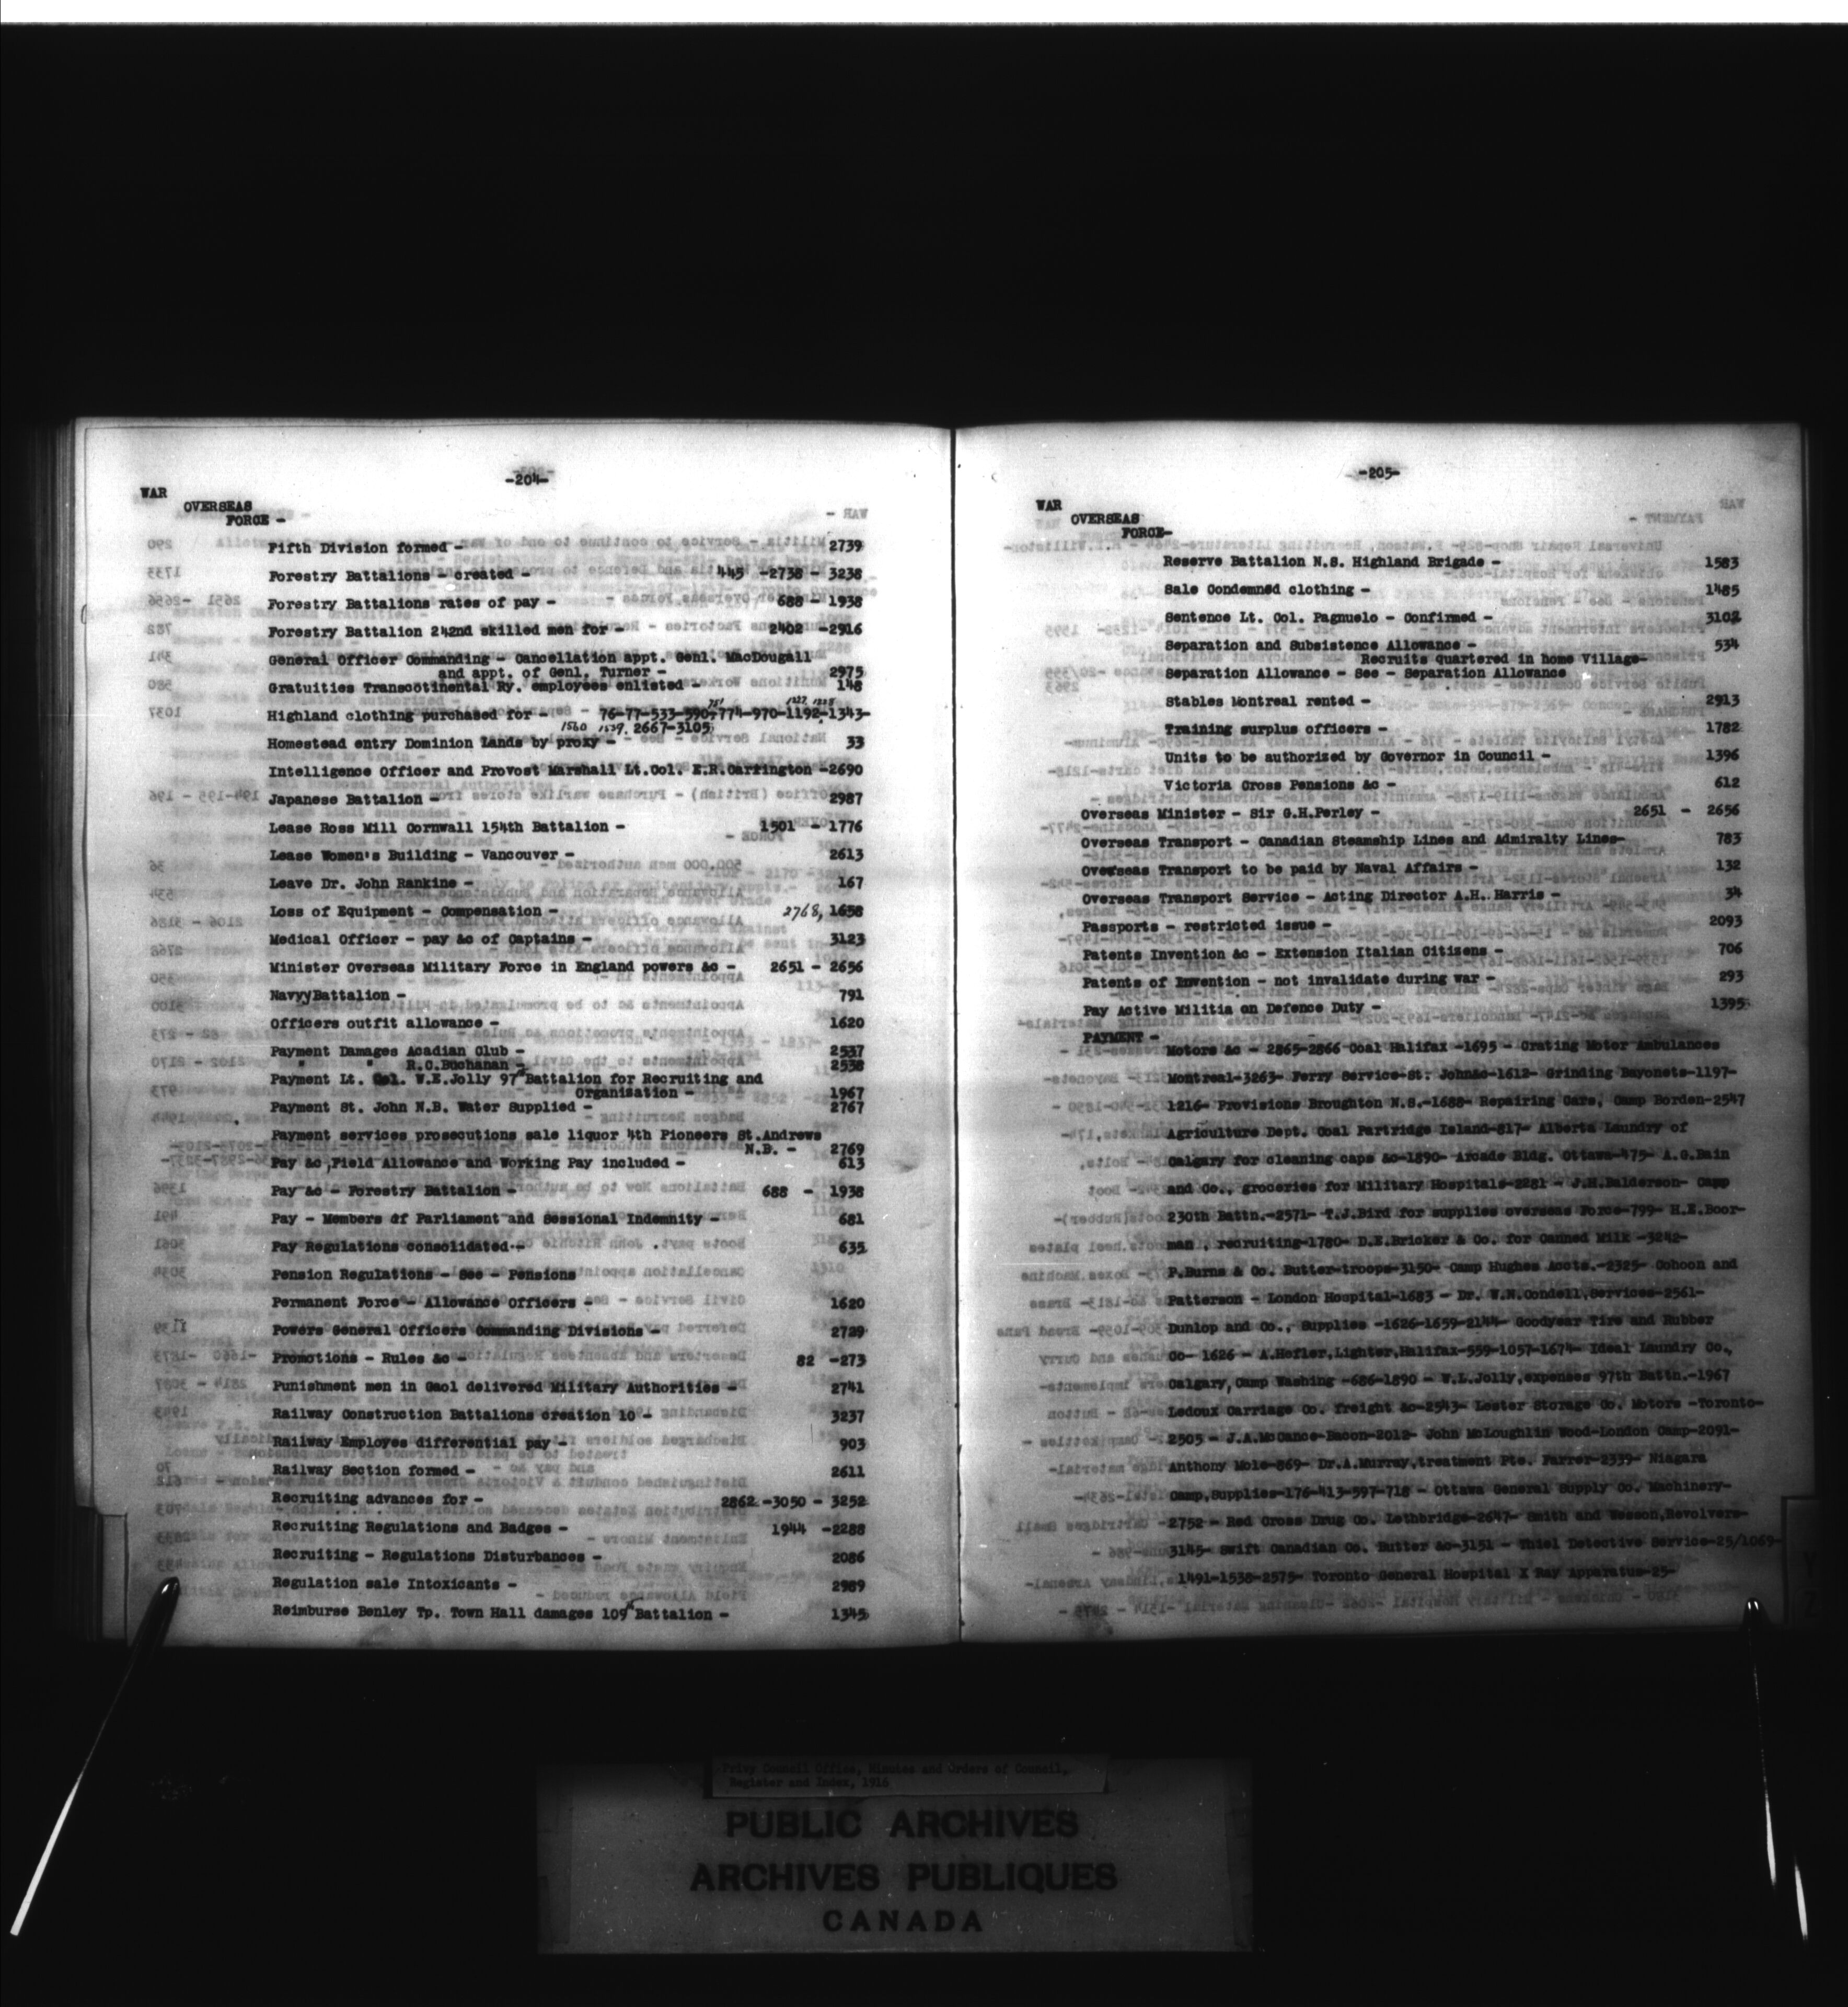 -204-
WAR
OVERSEAS
FORCE -
Fifth Division formed - 2739
Forestry Battalions - created - 445 -2738 - 3238
Forestry Battalions rates of pay - 688 - 1938
Forestry Battalion 242nd skilled men for - 2402 -2916
General Officer Commanding - Cancellation appt. Genl. MacDougall
and appt. of Genl. Turner - 2975
Gratuities Transcotinental Ry. employees enlisted - 148
751 1227 1228
Highland clothing purchased for - 76-77-533-590-774-970-1192-1343-
1560 1579. 2667-3105
Homestead entry Dominion Lands by proxy - 33
Intelligence Officer and Provost Marshall Lt.Col. E.R.Carrington -2690
Japanese Battalion - 2987
Lease Ross Mill Cornwall 154th Battalion - 1501 - 1776
Lease Women's Building - Vancouver - 2613
Leave Dr. John Rankine - 167
Loss of Equipment - Compensation - 2768, 1638
Medical Officer - pay &c of Captains - 3123
Minister Overseas Military Force in England powers &c - 2651 - 2656
NavyyBattalion - 791
Officers outfit allowance - 1620
Payment Damages Acadian Club - 2537
" " R.C.Buchanan - 2538
Payment Lt. Col. W.E.Jolly 97th Battalion for Recruiting and
Organisation - 1967
Payment St. John N.B. Water Supplied - 2767
Payment services prosecutions sale liquor 4th Pioneers St.Andrews
N.B. - 2769
Pay &c ,Field Allowance and Working Pay included - 613
Pay &c - Forestry Battalion - 688 - 1938
Pay - Members of Parliament and Sessional Indemnity - 681
Pay Regulations consolidated - 635
Pension Regulations - See - Pensions
Permanent Force - Allowance Officers - 1620
Powers General Officers Commanding Divisions - 2729
Promotions - Rules &c - 82 -273
Punishment men in Gaol delivered Military Authorities - 2741
Railway Construction Battalions creation 10 - 3237
Railway Employes differential pay - 903
Railway Section formed - 2611
Recruiting advances for - 2862 -3050 - 3252
Recruiting Regulations and Badges - 1944 -2288
Recruiting - Regulations Disturbances - 2086
Regulation sale Intoxicants - 2989
Reimburse Benley Tp. Town Hall damages 109th Battalion - 1345
-205-
WAR
OVERSEAS
FORCE-
Reserve Battalion N.S. Highland Brigade - 1583
Sale Condemned clothing - 1485
Sentence Lt. Col. Pagnuelo - Confirmed - 3102
Separation and Subsistence Allowance - 534
Recruits quartered in home Village-
Separation Allowance - See - Separation Allowance
Stables Montreal rented - 2913
Training surplus officers - 1782
Units to be authorized by Governor in Council - 1396
Victoria Cross Pensions &c - 612
Overseas Minister - Sir G.H.Perley - 2651 - 2656
Overseas Transport - Canadian Steamship Lines and Admiralty Lines- 783
Overseas Transport to be paid by Naval Affairs - 132
Overseas Transport Service - Acting Director A.H. Harris - 34
Passports - restricted issue - 2093
Patents Invention &c - Extension Italian Citizens - 706
Patents of Invention - not invalidate during war - 293
Pay Active Militia on Defence Duty - 1395
PAYMENT -
Motors &c - 2865-2866 Coal Halifax -1695 - Crating Motor Ambulances
Montreal-3263- Ferry Service-St. John&c-1612- Grinding Bayonets-1197-
1216- Provisions Broughton N.S.-1688- Repairing Cars, Camp Borden-2547
Agriculture Dept. Coal Partridge Island-817- Alberta Laundry of
Calgary for cleaning caps &c-1890- Arcade Bldg. Ottawa-475- A.G.Bain
and Co., groceries for Military Hospitals-2281 - J.H.Balderson- Camp
230th Battn.-2571- T.J.Bird for supplies overseas Force-799- H.E.Boor-
man , recruiting-1780- D.E.Bricker & Co. for Canned Milk -3242-
P.Burns & Co. Butter-troops-3150- Camp Hughes Accts.-2325- Cohoon and
Patterson - London Hospital-1683 - Dr. W.N.Condell,Services-2561-
Dunlop and Co., Supplies -1626-1659-2144- Goodyear Tire and Rubber
Co- 1626 - A.Hefler,Lighter,Halifax-559-1057-1674- Ideal Laundry Co.,
Calgary,Camp Washing -686-1890 - W.L.Jolly,expenses 97th Battn.-1967
Ledoux Carriage Co. freight &c-2543- Lester Storage Co. Motors -Toronto-
2505 - J.A.McCance-Bacon-2012- John McLoughlin Wood-London Camp-2091-
Anthony Mole-869- Dr.A.Murray,treatment Pte. Farrer-2339- Niagara
Camp,Supplies-176-413-597-718 - Ottawa General Supply Co. Machinery-
2752 - Red Cross Drug Co. Lethbridge-2647- Smith and Wesson,Revolvers-
3145- Swift Canadian Co. Butter &c-3151 - Thiel Detective Service-25/1069-
1491-1538-2575- Toronto General Hospital X Ray Apparatus-25-
Privy Council Office, Minutes and Orders of Council,
Register and Index, 1916
PUBLIC ARCHIVES
ARCHIVES PUBLIQUES
CANADA